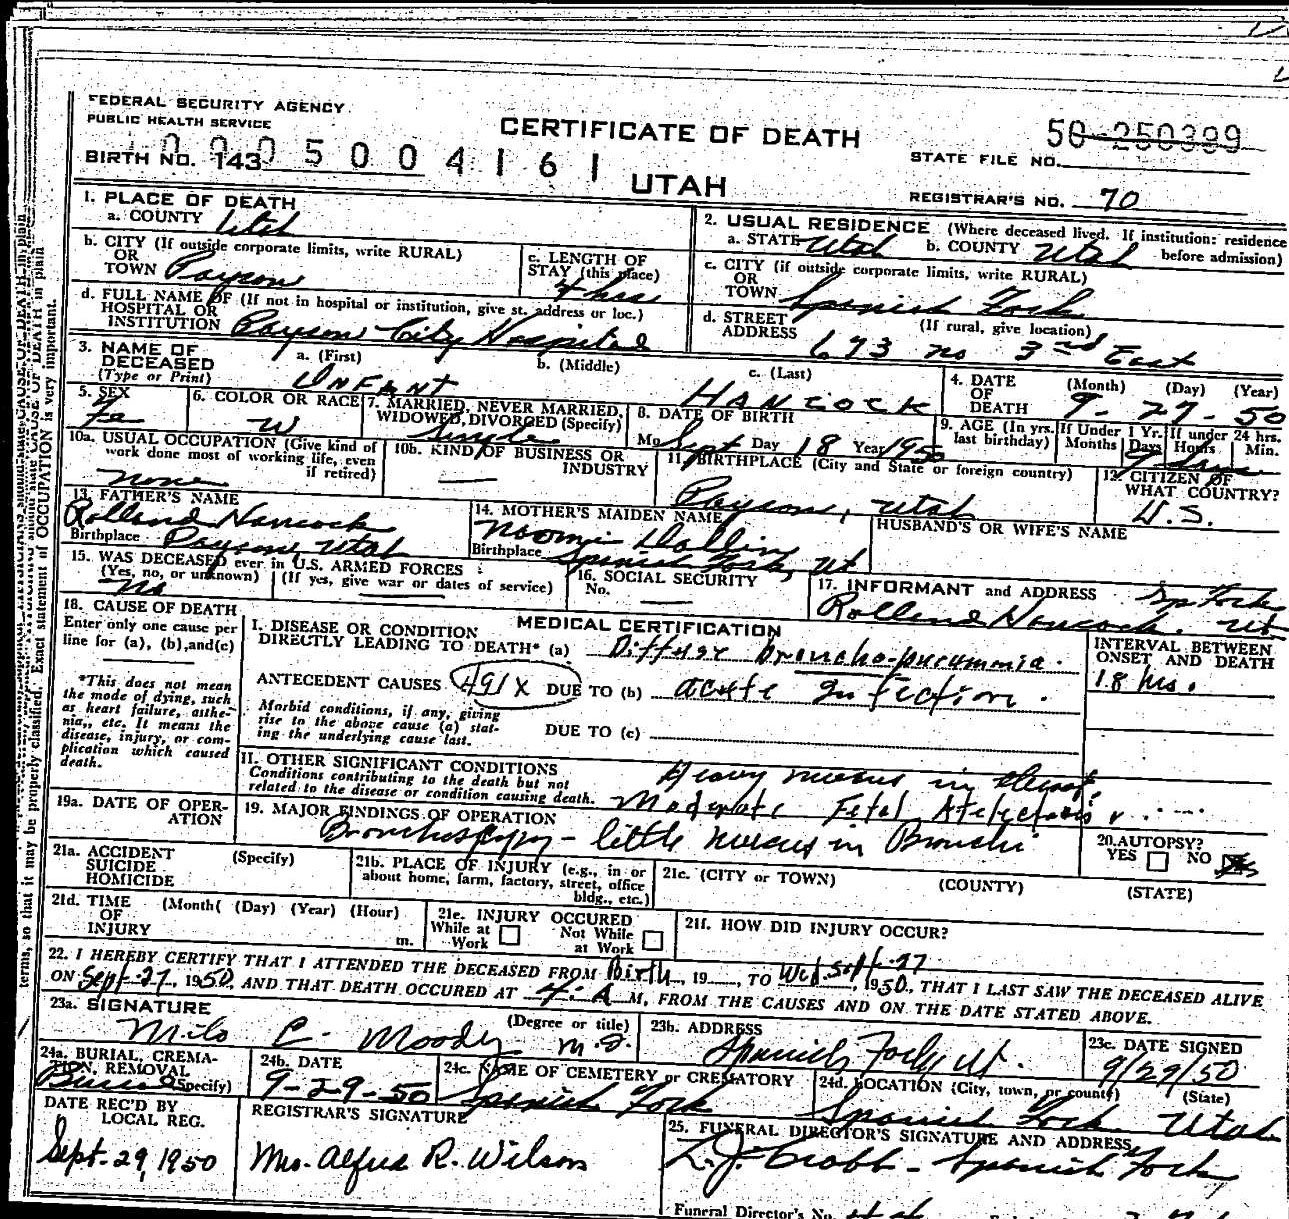 FEDERAL SECURITY AGENCY
PUBLIC HEALTH SERVICE
CERTIFICATE OF DEATH
50-250399
STATE FILE NO.
BIRTH NO. 143
0005004161
UTAH
REGISTRAR'S NO. 70
1. PLACE OF DEATH
a. COUNTY Utah
2. USUAL RESIDENCE (Where deceased lived. If institution: residence before admission)
a. STATE Utah b. COUNTY Utah
b. CITY (If outside corporate limits, write RURAL)
OR
TOWN Payson
c. LENGTH OF
STAY (this place)
4 hrs
c. CITY (if outside corporate limits, write RURAL)
OR
TOWN Spanish Fork
d. FULL NAME OF (If not in hospital or institution, give st. address or loc.)
HOSPITAL OR
INSTITUTION Payson City Hospital
d. STREET (If rural, give location)
ADDRESS 673 no 3rd East
3. NAME OF
DECEASED
(Type or Print)
a. (First) b. (Middle) c. (Last)
INFANT HANCOCK
4. DATE
OF
DEATH
(Month) (Day) (Year)
9-27-50
5. SEX
Fe
6. COLOR OR RACE
W
7. MARRIED, NEVER MARRIED,
WIDOWED, DIVORCED (Specify)
Single
8. DATE OF BIRTH
Mo Sept Day 18 Year 1950
9. AGE (In yrs. last birthday)
If Under 1 Yr.
Months Days
If under 24 hrs.
Hours Min.
10a. USUAL OCCUPATION (Give kind of
work done most of working life, even
if retired)
none
10b. KIND OF BUSINESS OR
INDUSTRY
—
11. BIRTHPLACE (City and State or foreign country)
Payson, Utah
12. CITIZEN OF
WHAT COUNTRY?
U.S.
13. FATHER'S NAME
Rolland Hancock
Birthplace Payson, Utah
14. MOTHER'S MAIDEN NAME
Naomi Dallin
Birthplace Spanish Fork, Ut
HUSBAND'S OR WIFE'S NAME
15. WAS DECEASED ever in U.S. ARMED FORCES
(Yes, no, or unknown) (If yes, give war or dates of service)
No
16. SOCIAL SECURITY
No. —
17. INFORMANT and ADDRESS Sp Fork
Rolland Hancock. Ut
18. CAUSE OF DEATH
Enter only one cause per
line for (a), (b), and (c)
*This does not mean
the mode of dying, such
as heart failure, asthe-
nia,, etc. It means the
disease, injury, or com-
plication which caused
death.
MEDICAL CERTIFICATION
I. DISEASE OR CONDITION
DIRECTLY LEADING TO DEATH* (a) Diffuse Broncho-pneumonia.
INTERVAL BETWEEN
ONSET AND DEATH
18 hrs.
ANTECEDENT CAUSES 491X DUE TO (b) acute infection.
Morbid conditions, if any, giving
rise to the above cause (a) stat-
ing the underlying cause last.
DUE TO (c)
II. OTHER SIGNIFICANT CONDITIONS
Conditions contributing to the death but not
related to the disease or condition causing death.
Heavy mucus in throat,
Moderate Fetal Atelectasis
19a. DATE OF OPER-
ATION
19. MAJOR FINDINGS OF OPERATION
Bronchoscopy - little mucus in Bronchi
20. AUTOPSY?
YES NO
21a. ACCIDENT
SUICIDE
HOMICIDE
(Specify)
21b. PLACE OF INJURY (e.g., in or
about home, farm, factory, street, office
bldg., etc.)
21c. (CITY or TOWN) (COUNTY) (STATE)
21d. TIME
OF
INJURY
(Month( (Day) (Year) (Hour)
m.
21e. INJURY OCCURED
While at
Work
Not While
at Work
21f. HOW DID INJURY OCCUR?
22. I HEREBY CERTIFY THAT I ATTENDED THE DECEASED FROM Birth, 19 , TO Wed. Sept. 27, 1950, THAT I LAST SAW THE DECEASED ALIVE
ON Sept. 27, 1950, AND THAT DEATH OCCURED AT 4: A M, FROM THE CAUSES AND ON THE DATE STATED ABOVE.
23a. SIGNATURE (Degree or title)
Milo C. Moody M.D.
23b. ADDRESS
Spanish Fork, Ut.
23c. DATE SIGNED
9/29/50
24a. BURIAL, CREMA-
TION, REMOVAL
(Specify)
Burial
24b. DATE
9-29-50
24c. NAME OF CEMETERY or CREMATORY
Spanish Fork
24d. LOCATION (City, town, or county) (State)
Spanish Fork Utah
DATE REC'D BY
LOCAL REG.
Sept. 29, 1950
REGISTRAR'S SIGNATURE
Mrs. Alfred R. Wilson
25. FUNERAL DIRECTOR'S SIGNATURE AND ADDRESS
Spanish Fork
Funeral Director's No.
terms, so that it may be properly classified. Exact statement of OCCUPATION is very important.